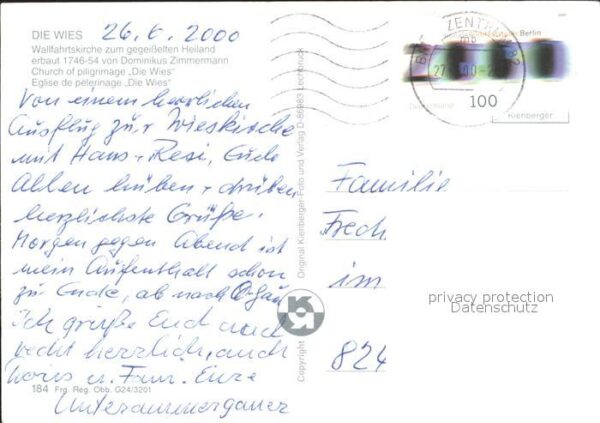 DIE WIES 26.6.2000
Wallfahrtskirche zum gegeißelten Heiland
erbaut 1746-54 von Dominikus Zimmermann
Church of pilgrimage „Die Wies"
Eglise de pèlerinage „Die Wies"
Von einem herrlichen
Ausflug zur Wieskirche
mit Hans + Resi, Euch
Allen hüben + drüben
herzlichste Grüße.
Morgen gegen Abend ist
mein Aufenthalt schon
zu Ende, ab nach
Ich grüße Euch
recht herzlich, auch
u. Fam. Eure
Unterammergauer
184 Frg. Reg. Obb. G24/3201
Copyright
Original Kienberger-Foto und Verlag D-86983 Lechbruck
BRIEFZENTRUM 82
Berlin
Deutschland
100
Kienberger
Familie
Frech
im
824
privacy protection
Datenschutz